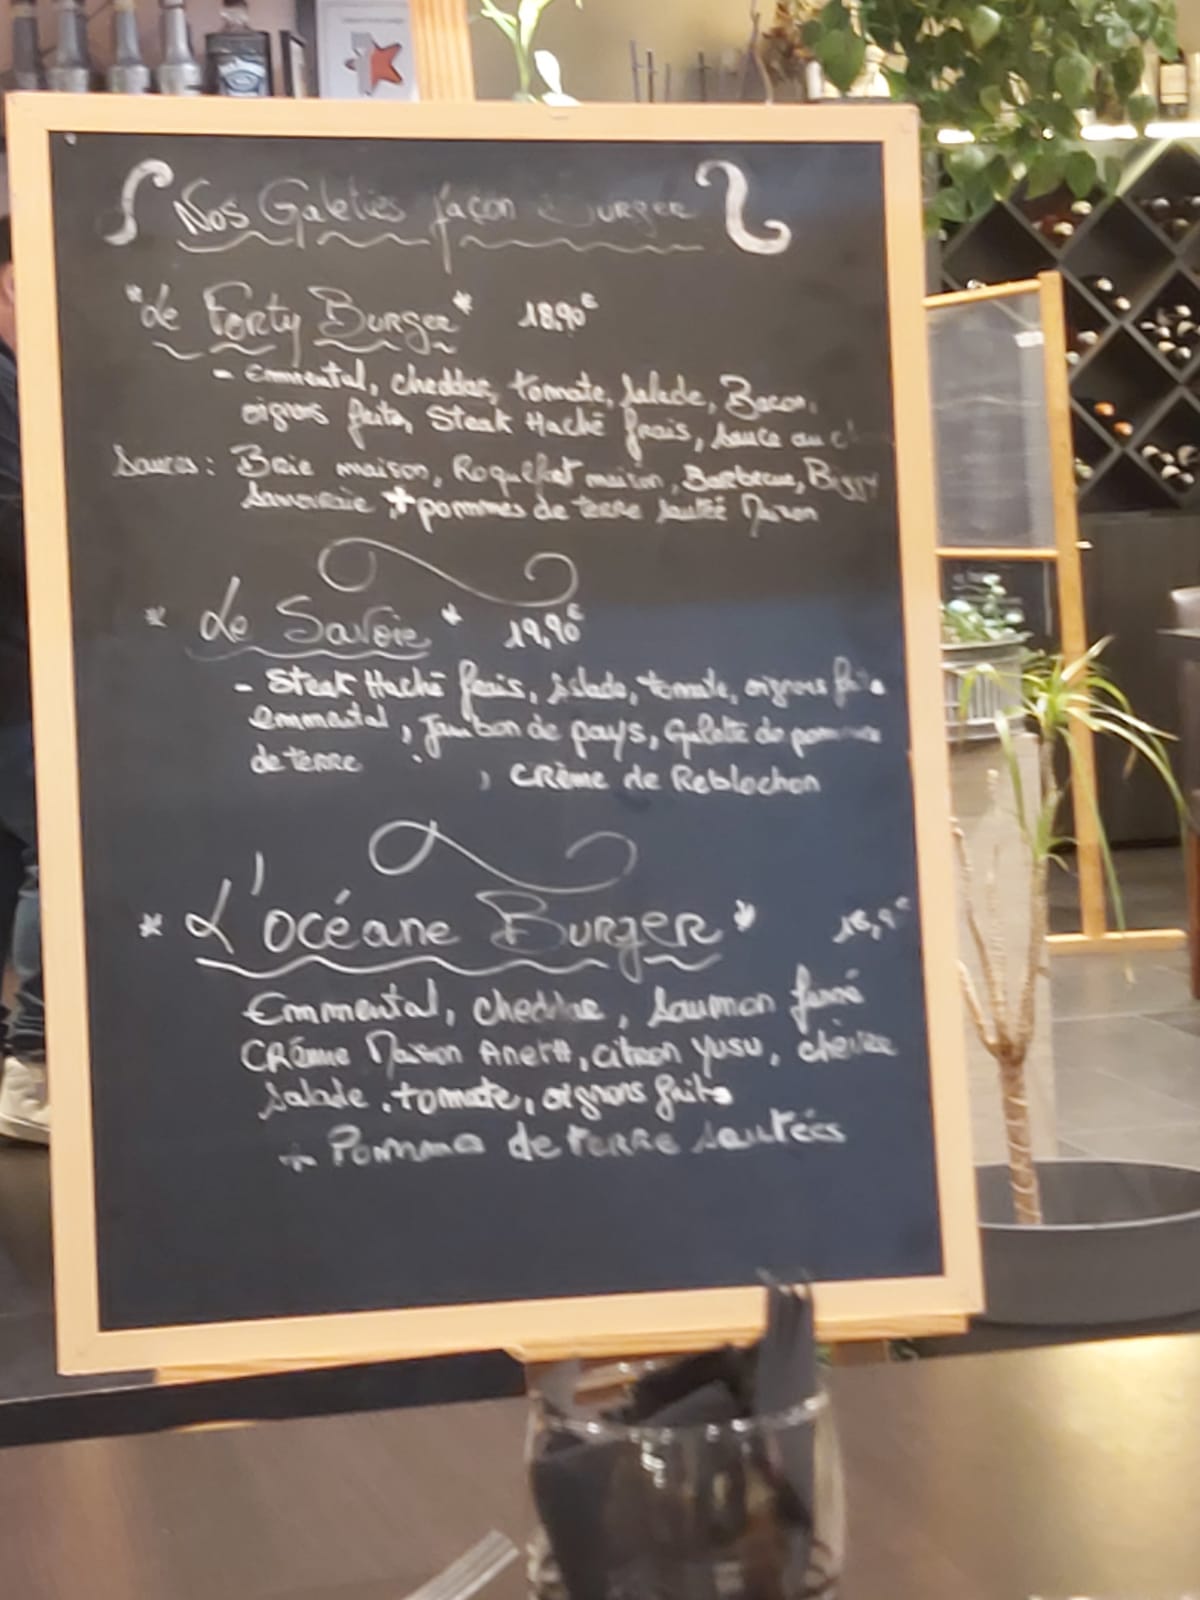 Nos Galettes façon Burger
"Le Forty Burger" 18,90€
- emmental, cheddar, tomate, salade, Bacon,
oignons frits, Steak Haché frais, sauce au
Sauces: Brie maison, Roquefort maison, Barbecue, Biggy
+ pommes de terre sauté Maison
* Le Savoie * 19,90€
- Steak Haché frais, salade, tomate, oignons
emmental, Jambon de pays, Galette de pomme
de terre , CRème de Reblochon
* L'océane Burger *
Emmental, cheddar, Saumon fumé
CRème Maison Aneth, citron yusu, chèvre
salade, tomate, oignons frits
+ Pomme de terre sautées